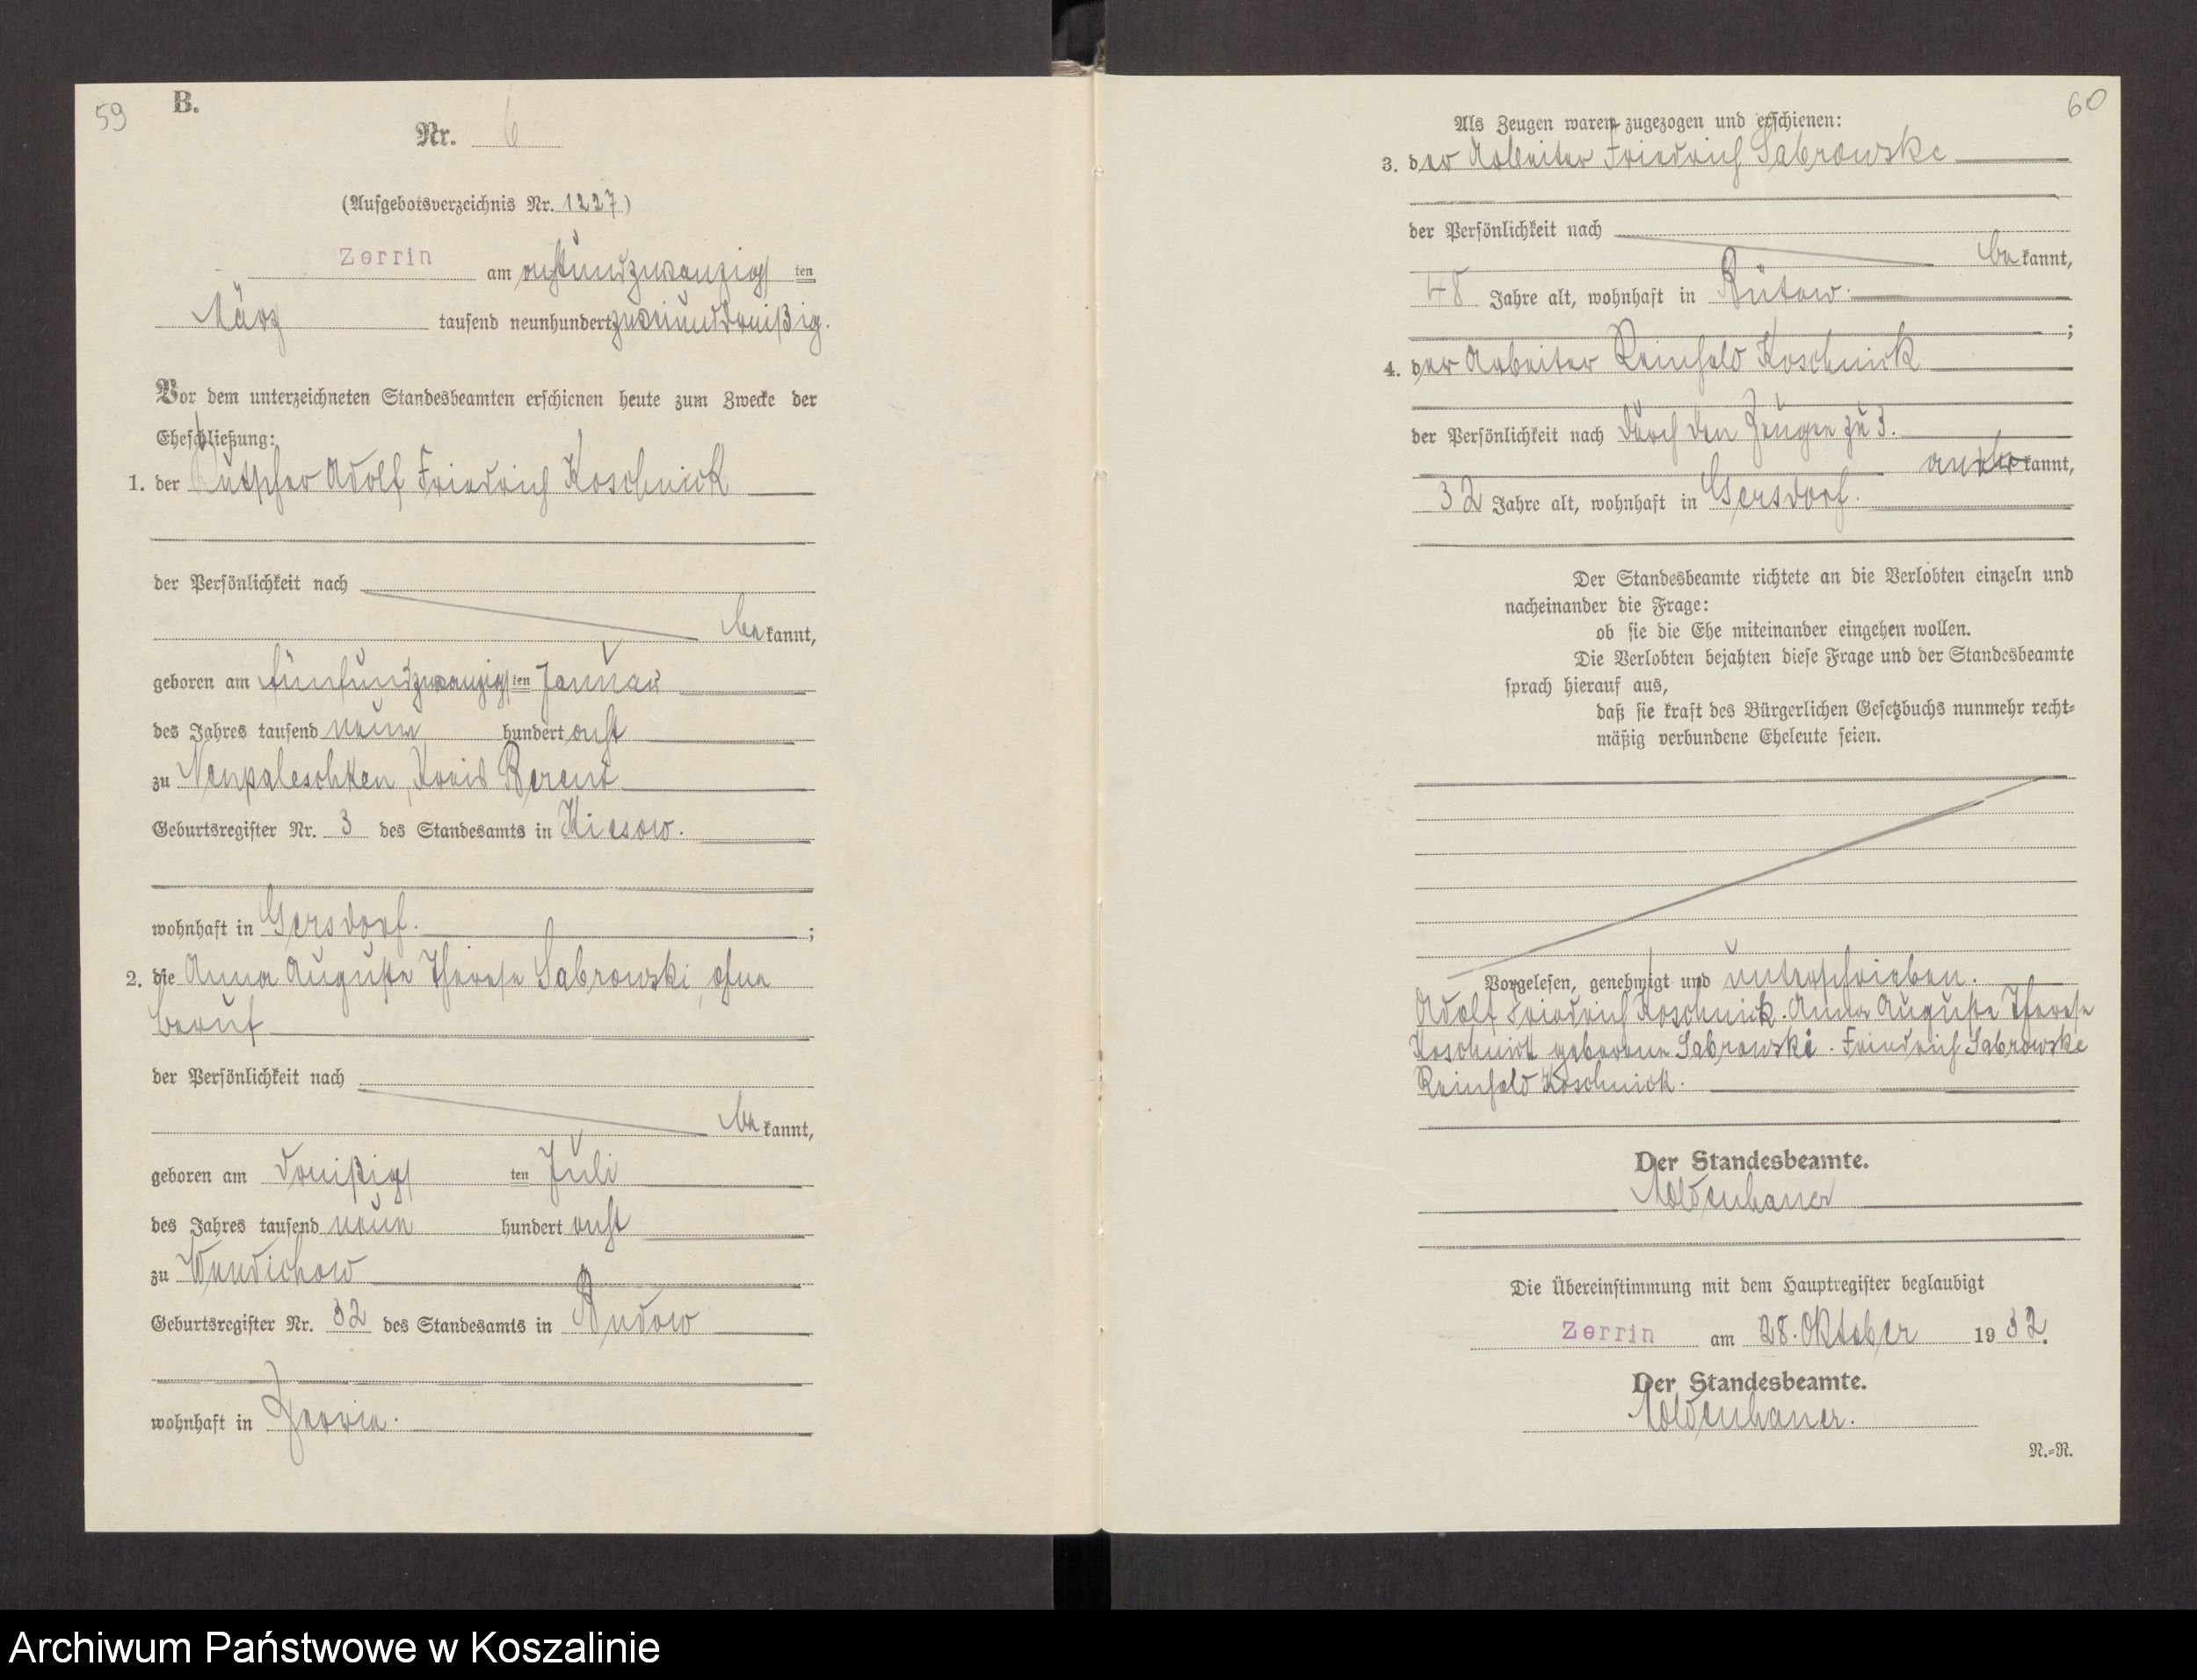 59
B.
Nr. 6
(Aufgebotsverzeichnis Nr. 1227)
Zerrin am achtundzwanzigsten
März tausend neunhundert zweiunddreißig.
Vor dem unterzeichneten Standesbeamten erschienen heute zum Zwecke der
Eheschließung:
1. der Kutscher Adolf Friedrich Koschnick
der Persönlichkeit nach
bekannt,
geboren am fünfundzwanzigsten Januar
des Jahres tausend neun hundert acht
zu Neupaleschken, Kreis Berent
Geburtsregister Nr. 3 des Standesamts in
wohnhaft in Gersdorf. ;
2. die Anna Auguste Therese Sabrowski, ohne
Beruf
der Persönlichkeit nach
bekannt,
geboren am dreißigsten Juli
des Jahres tausend neun hundert acht
zu Wundichow
Geburtsregister Nr. 32 des Standesamts in Budow
wohnhaft in Zerrin.
60
Als Zeugen waren zugezogen und erschienen:
3. der Arbeiter Friedrich Sabrowske
der Persönlichkeit nach
bekannt,
48 Jahre alt, wohnhaft in Bütow.
;
4. der Arbeiter Reinhold Koschnick
der Persönlichkeit nach durch den Zeugen zu 3.
anerkannt,
32 Jahre alt, wohnhaft in Gersdorf.
Der Standesbeamte richtete an die Verlobten einzeln und
nacheinander die Frage:
ob sie die Ehe miteinander eingehen wollen.
Die Verlobten bejahten diese Frage und der Standesbeamte
sprach hierauf aus,
daß sie kraft des Bürgerlichen Gesetzbuchs nunmehr recht-
mäßig verbundene Eheleute seien.
Vorgelesen, genehmigt und unterschrieben.
Adolf Friedrich Koschnick. Anna Auguste Therese
Koschnick geborene Sabrowski. Friedrich Sabrowske
Reinhold Koschnick.
Der Standesbeamte.
Moldenhauer
Die Übereinstimmung mit dem Hauptregister beglaubigt
Zerrin am 28. Oktober 1932.
Der Standesbeamte.
Moldenhauer.
N.-R.
Archiwum Państwowe w Koszalinie